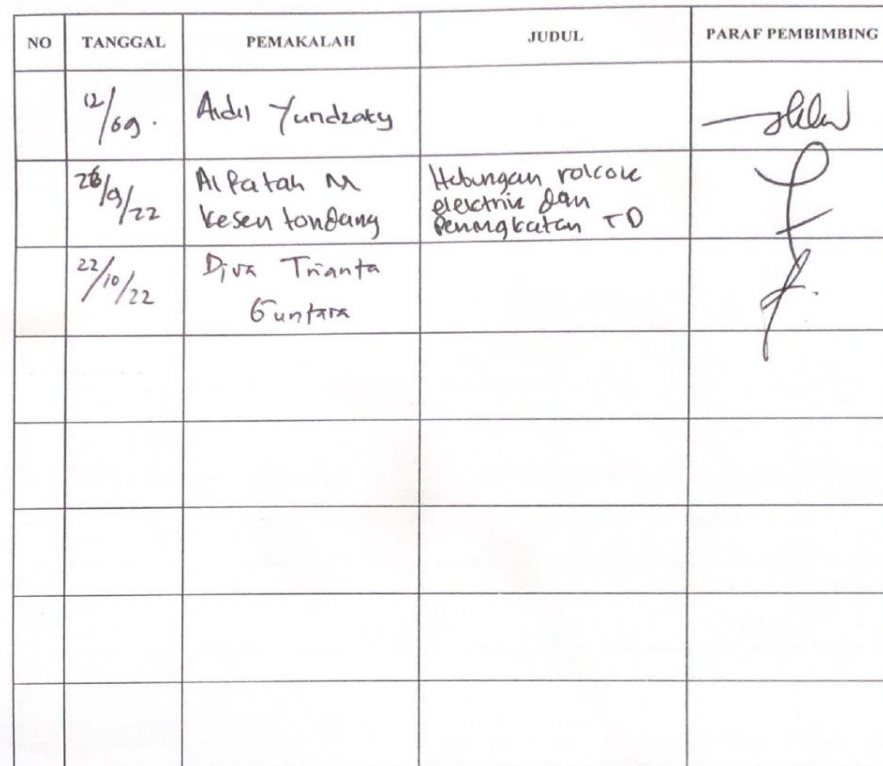 NO TANGGAL PEMAKALAH JUDUL PARAF PEMBIMBING
12/09. Aidil Yundzaky
26/9/22 Alfatah M Hubungan rokok
kesen tondang elektrik dan
Peningkatan TD
22/10/22 Diva Trianta
Guntara